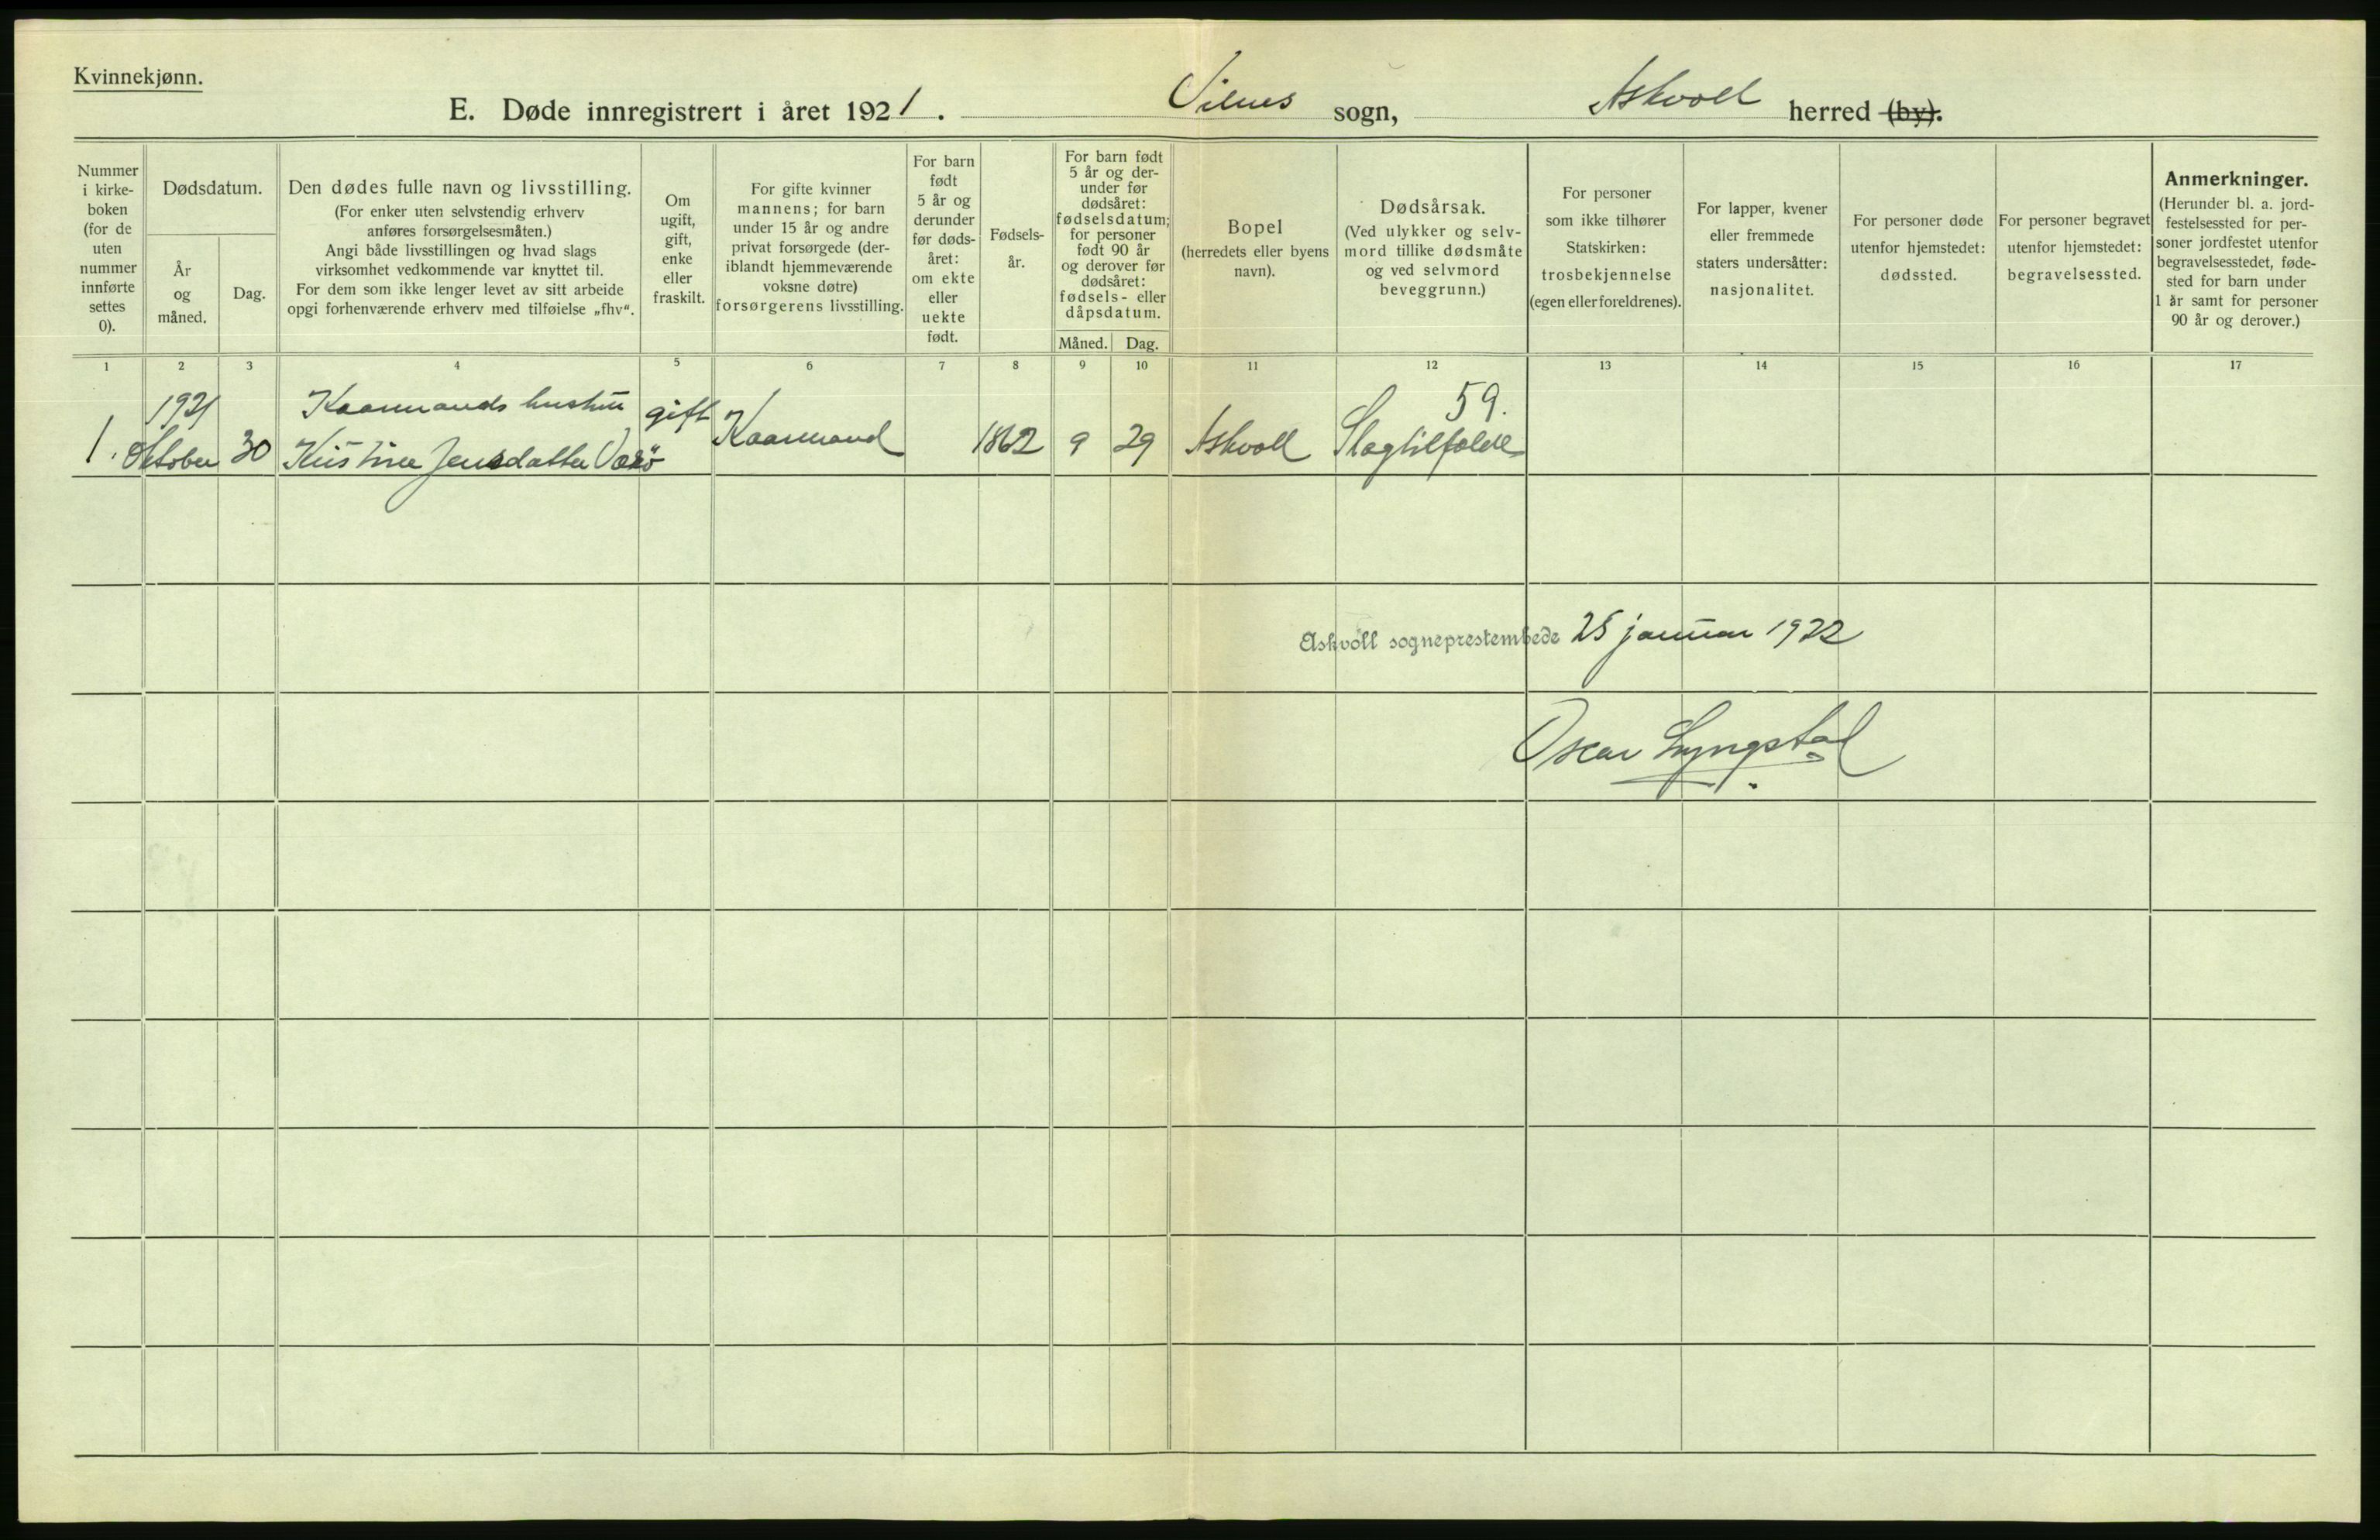 Kvinnekjønn.
E. Døde innregistrert i året 1921. Vilnes sogn, Askvoll herred (by).
Nummer
i kirke-
boken
(for de
uten
nummer
innførte
settes
0).
Dødsdatum.
År
og
måned.
Dag.
Den dødes fulle navn og livsstilling.
(For enker uten selvstendig erhverv
anføres forsørgelsesmåten.)
Angi både livsstillingen og hvad slags
virksomhet vedkommende var knyttet til.
For dem som ikke lenger levet av sitt arbeide
opgi forhenværende erhverv med tilføielse „fhv“.
Om
ugift,
gift,
enke
eller
fraskilt.
For gifte kvinner
mannens; for barn
under 15 år og andre
privat forsørgede (der-
iblandt hjemmeværende
voksne døtre)
forsørgerens livsstilling.
For barn
født
5 år og
derunder
før døds-
året:
om ekte
eller
uekte
født.
Fødsels-
år.
For barn født
5 år og der-
under før
dødsåret:
fødselsdatum;
for personer
født 90 år
og derover før
dødsåret:
fødsels- eller
dåpsdatum.
Måned. Dag.
Bopel
(herredets eller byens
navn).
Dødsårsak.
(Ved ulykker og selv-
mord tillike dødsmåte
og ved selvmord
beveggrunn.)
For personer
som ikke tilhører
Statskirken:
trosbekjennelse
(egen eller foreldrenes).
For lapper, kvener
eller fremmede
staters undersåtter:
nasjonalitet.
For personer døde
utenfor hjemstedet:
dødssted.
For personer begravet
utenfor hjemstedet:
begravelsessted.
Anmerkninger.
(Herunder bl. a. jord-
festelsessted for per-
soner jordfestet utenfor
begravelsesstedet, føde-
sted for barn under
1 år samt for personer
90 år og derover.)
1 2 3 4 5 6 7 8 9 10 11 12 13 14 15 16 17
1921 Kaarmands hustru gift 59.
1. Oktober 30 Kristine Jensdatter Værö Kaarmand 1862 9 29 Askvoll Slagtilfælde
Askvoll sogneprestembede 25 januar 1922
Oscar Lyngstad